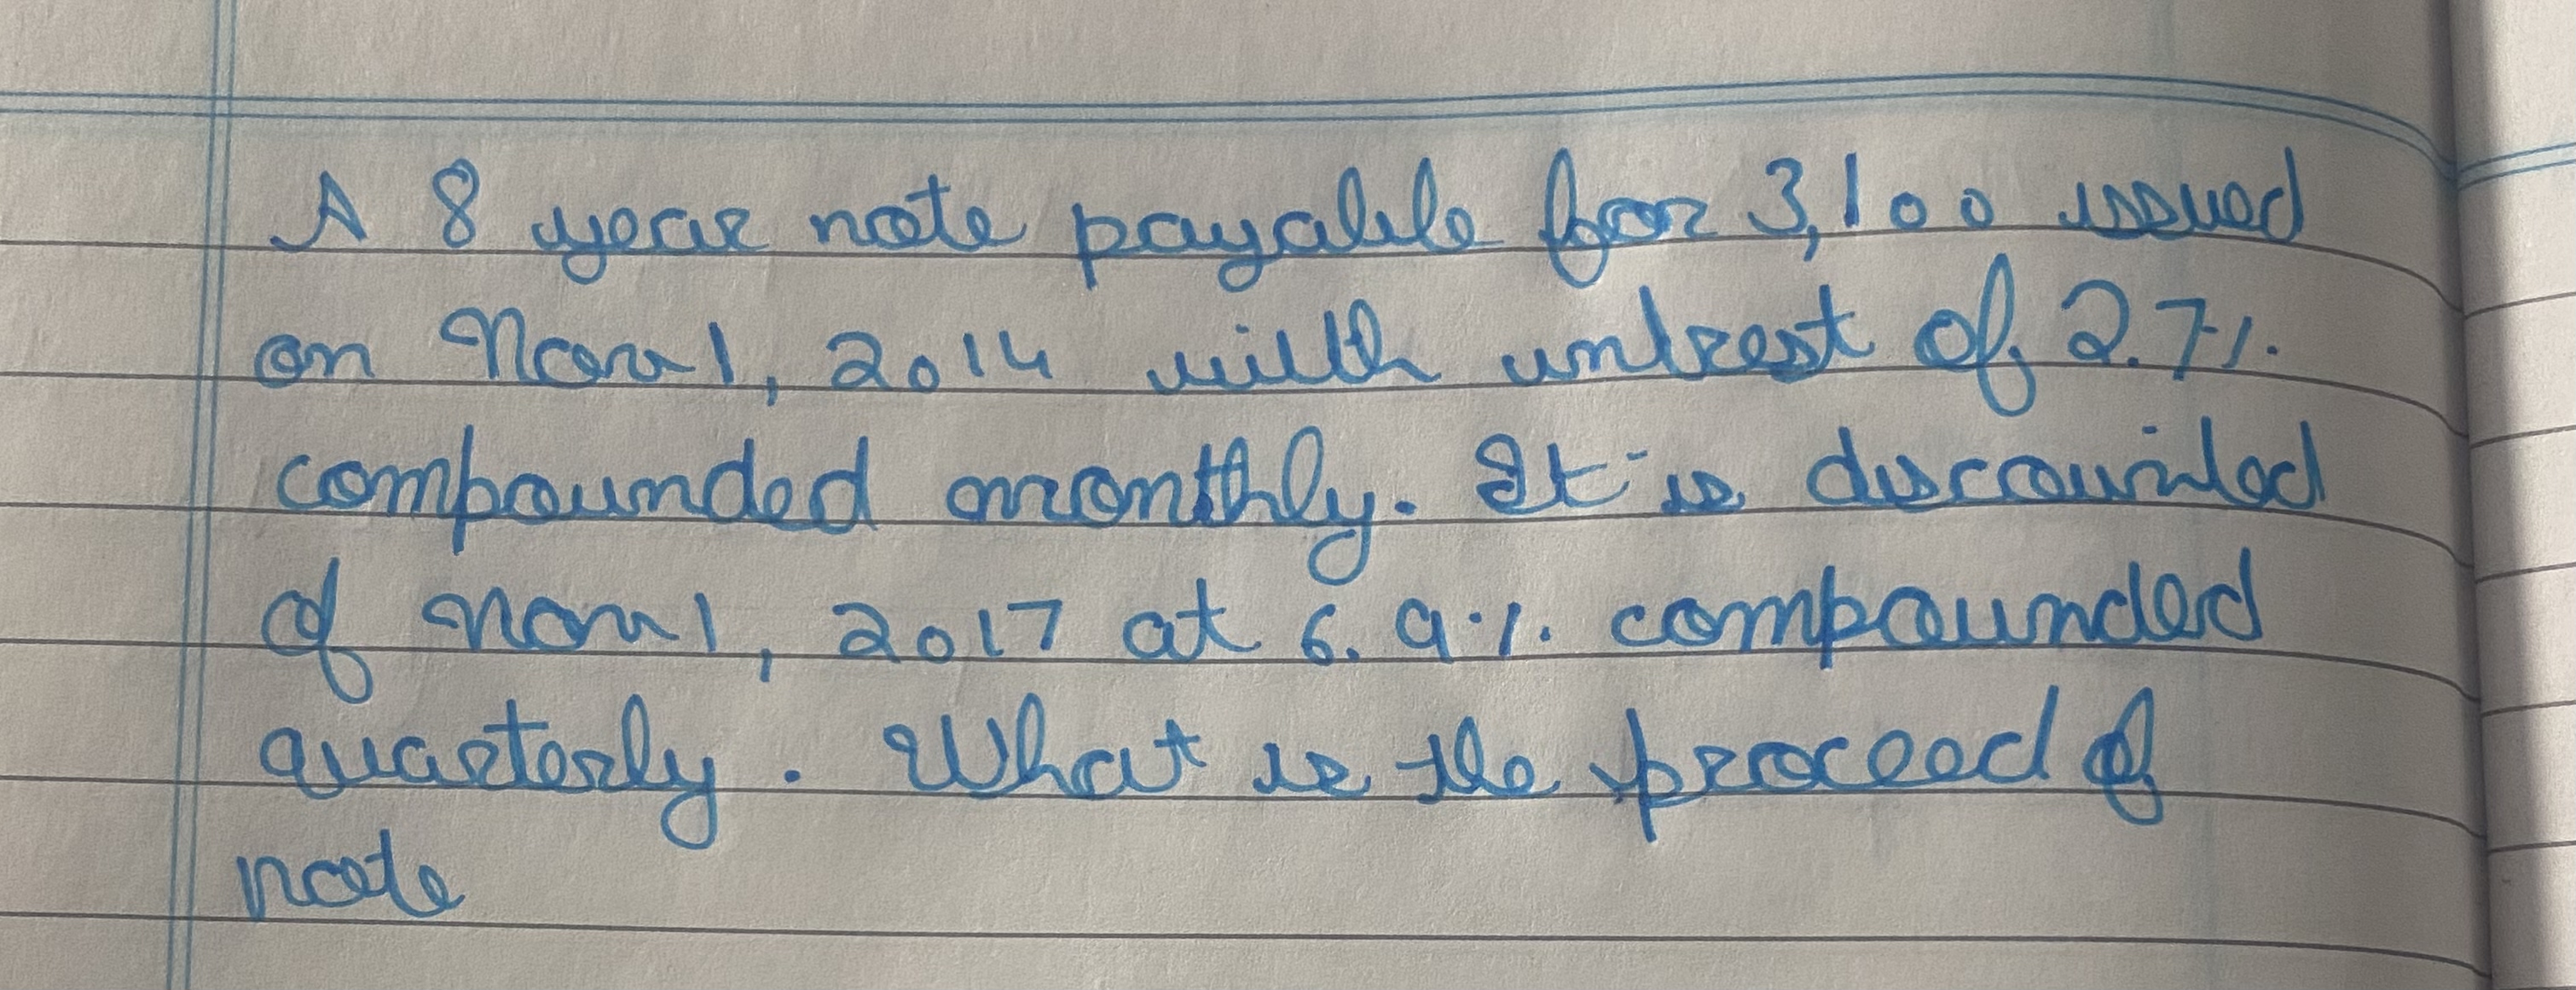 A 8 year note payable for 3,100 issued
on Nov 1, 2014 with intrest of 2.7%.
compounded monthly. It is discounted
of Nov 1, 2017 at 6.9%. compounded
quarterly. What is the proceed of
note